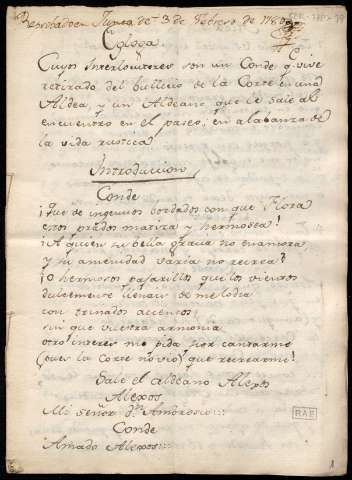 Reprobada en Junta de 3 de Febrero de 1780
Egloga
Cuyos Interlocutores son un Conde q.e vive
retirado del bullicio de la Corte en una
Aldea, y un Aldeano que le sale al
encuentro en el paseo; en alabanza de
la vida rustica
Introduccion
Conde
¡Que de ingenuos bordados con que Flora
estos prados matiza y hermosea!
¿A quien su bella gracia no enamora
y su amenidad varia no recrea?
¡O hermosos pajarillos que los vientos
dulcemente llenais de melodia
con trinados accentos:
sin que vuestra armonia
otro interes me pida por cantarme
(pues la Corte no vio) que recrearme!
Sale el aldeano Alexos
Alexos
Mi Señor Dn. Ambrosio:::
Conde
Amado Alexos:::
RAE
1